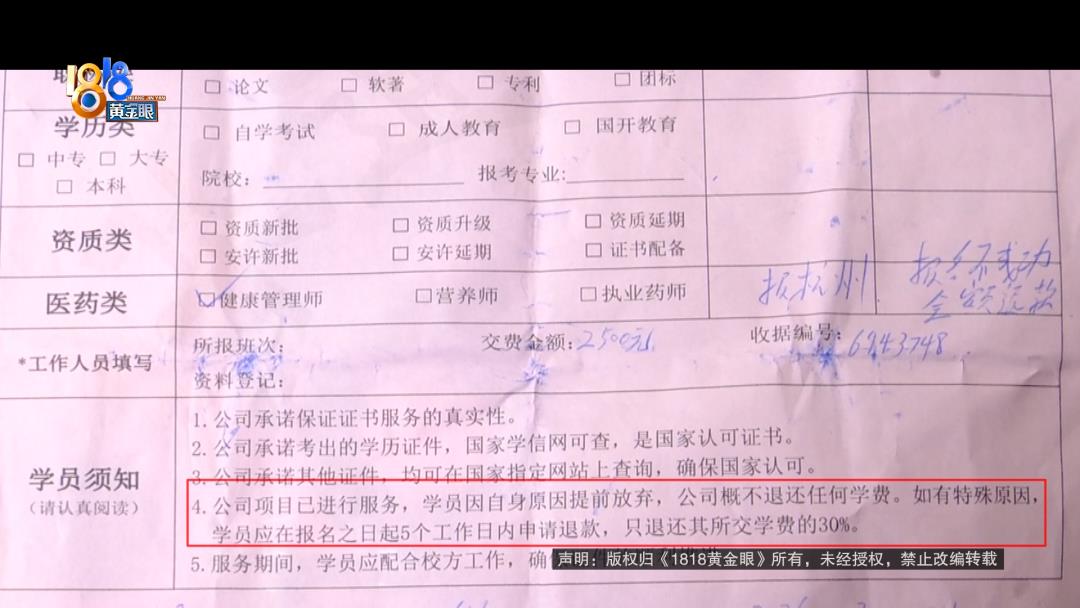 1818
黄金眼
□ 论文 □ 软著 □ 专利 □ 团标
学历类
□ 中专 □ 大专
□ 本科
□ 自学考试 □ 成人教育 □ 国开教育
院校：________ 报考专业:________
资质类
□ 资质新批 □ 资质升级 □ 资质延期
□ 安许新批 □ 安许延期 □ 证书配备
医药类
☑健康管理师 □营养师 □执业药师
报杭州
报名不成功
全额退款
*工作人员填写
所报班次： 交费金额：2500元 收据编号：6943748
资料登记：
学员须知
（请认真阅读）
1. 公司承诺保证证书服务的真实性。
2. 公司承诺考出的学历证件，国家学信网可查，是国家认可证书。
3. 公司承诺其他证件，均可在国家指定网站上查询，确保国家认可。
4. 公司项目已进行服务，学员因自身原因提前放弃，公司概不退还任何学费。如有特殊原因，
学员应在报名之日起5个工作日内申请退款，只退还其所交学费的30%。
5. 服务期间，学员应配合校方工作，确
声明：版权归《1818黄金眼》所有，未经授权，禁止改编转载